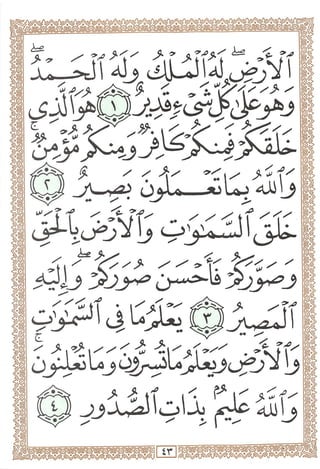 ٱلۡأَرۡضِۖ لَهُ ٱلۡمُلۡكُ وَلَهُ ٱلۡحَمۡدُۖ
وَهُوَ عَلَىٰ كُلِّ شَىۡءٖ قَدِيرٌ ١ هُوَ ٱلَّذِي
خَلَقَكُمۡ فَمِنكُمۡ كَافِرٞ وَمِنكُم مُّؤۡمِنٞۚ
وَٱللَّهُ بِمَا تَعۡمَلُونَ بَصِيرٌ ٢
خَلَقَ ٱلسَّمَٰوَٰتِ وَٱلۡأَرۡضَ بِٱلۡحَقِّ
وَصَوَّرَكُمۡ فَأَحۡسَنَ صُوَرَكُمۡۖ وَإِلَيۡهِ
ٱلۡمَصِيرُ ٣ يَعۡلَمُ مَا فِي ٱلسَّمَٰوَٰتِ
وَٱلۡأَرۡضِ وَيَعۡلَمُ مَا تُسِرُّونَ وَمَا تُعۡلِنُونَۚ
وَٱللَّهُ عَلِيمُۢ بِذَاتِ ٱلصُّدُورِ ٤
٤٣